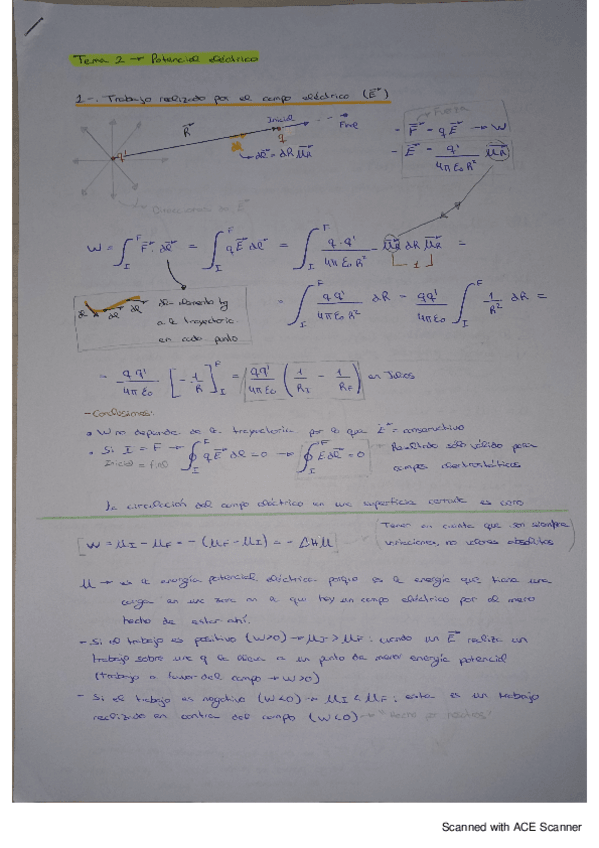 Tema 2 → Potencial eléctrico
1-. Trabajo realizado por el campo eléctrico (E⃗)
R⃗ Inicial F⃗ne
q' q
dl⃗ = dR u⃗R
Fuerza
- F⃗ = qE⃗ → W
- E⃗ = q' / 4πε₀R² u⃗R
Direcciones de E⃗
W = ∫_I^F F⃗ · dl⃗ = ∫_I^F qE⃗ dl⃗ = ∫_I^F q·q' / 4πε₀R² u⃗R dR u⃗R =
1
dl dl dl
dl = elemento tg
a la trayectoria
en cada punto
= ∫_I^F qq' / 4πε₀R² dR = qq' / 4πε₀ ∫_I^F 1/R² dR =
= qq' / 4πε₀ · [-1/R]_I^F = qq' / 4πε₀ (1/R_I - 1/R_F) en Julios
- Conclusiones:
• W no depende de la trayectoria por lo que E⃗ = conservativo
• Si I = F → ∮_I^F qE⃗ dl = 0 → ∮_I^F E⃗ dl⃗ = 0
Inicial = final
Resultado sólo válido para
campos electrostáticos
La circulación del campo eléctrico en una superficie cerrada es cero
W = μ_I - μ_F = -(μ_F - μ_I) = -Δμ
Tener en cuenta que son siempre
variaciones, no valores absolutos
μ → es la energía potencial eléctrica porque es la energía que tiene una
carga en una zona en la que hay un campo eléctrico por el mero
hecho de estar ahí.
- Si el trabajo es positivo (W>0) → μ_I > μ_F : cuando un E⃗ realiza un
trabajo sobre una q la lleva a un punto de menor energía potencial
(trabajo a favor del campo → W>0)
- Si el trabajo es negativo (W<0) → μ_I < μ_F ; este es un trabajo
realizado en contra del campo (W<0) → "Hecho por nosotros"
Scanned with ACE Scanner